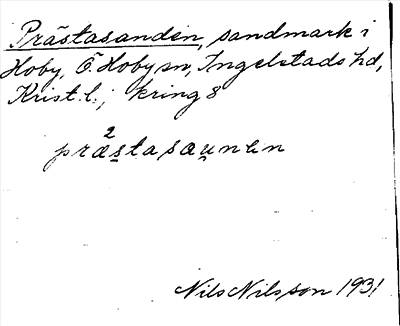 Prästasanden, sandmark i
Hoby, Ö. Hoby sn, Ingelstads hd,
Krist. l.; kring 8
2
præstasau̯nen
Nils Nilsson 1931